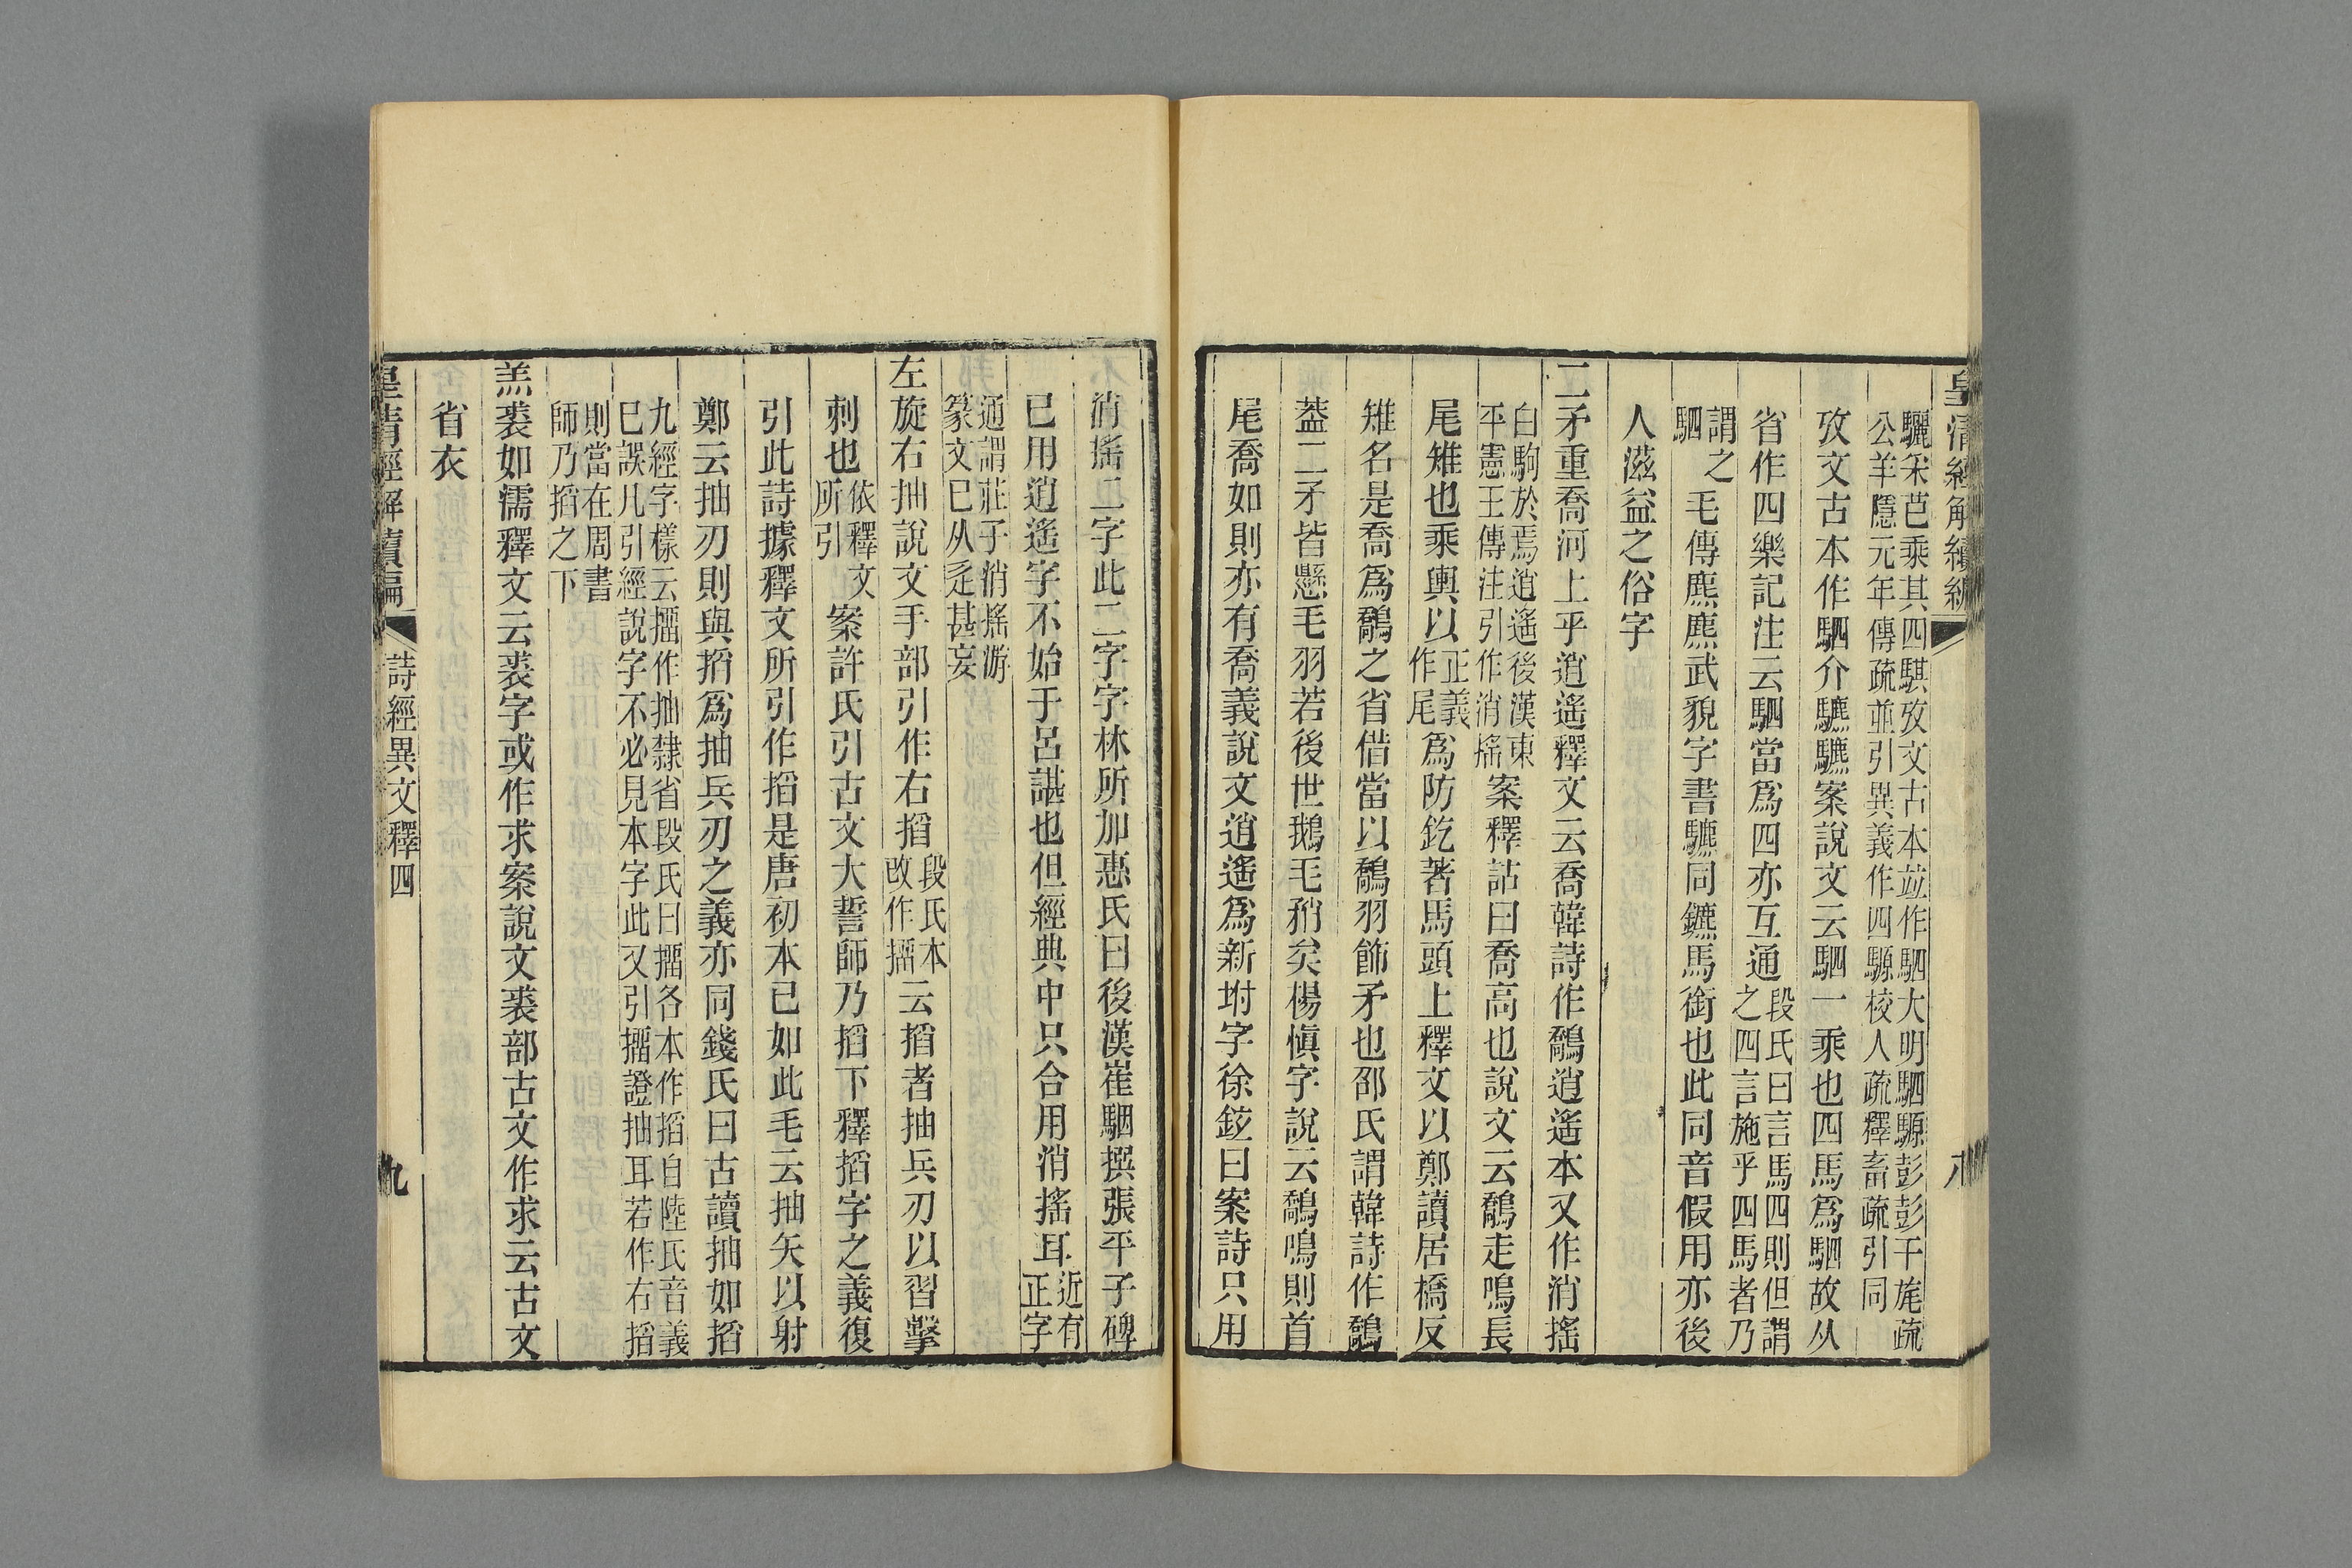 皇清經解續編
八
驪采芭乘其四騏攷文古本竝作駟大明駟騵彭彭干旄疏
公羊隱元年傳疏並引異義作四騵校人疏釋畜疏引同
攷文古本作駟介驪驪案說文云駟一乘也四馬爲駟故从
省作四樂記注云駟當爲四亦互通段氏曰言馬四則但謂
之四言施乎四馬者乃
謂之
駟毛傳麃麃武貌字書驪同鑣馬銜也此同音假用亦後
人滋益之俗字
二矛重喬河上乎逍遙釋文云喬韓詩作鷮逍遙本又作消搖
白駒於焉逍遙後漢東
平憲王傳注引作消搖案釋詁曰喬高也說文云鷮走鳴長
尾雉也乘輿以正義
作尾爲防釳著馬頭上釋文以鄭讀居橋反
雉名是喬爲鷮之省借當以鷮羽飾矛也邵氏謂韓詩作鷮
蓋二矛皆懸毛羽若後世鵝毛矟矣楊愼字說云鷮鳴則首
尾喬如則亦有喬義說文逍遙爲新坿字徐鉉曰案詩只用
消搖二字此二字字林所加惠氏曰後漢崔駰撰張平子碑
已用逍遙字不始于呂諶也但經典中只合用消搖耳近有
正字
通謂莊子消搖游
篆文巳从辵甚妄
左旋右抽說文手部引作右搯段氏本
改作㨨云搯者抽兵刃以習擊
刺也依釋文
所引案許氏引古文大誓師乃搯下釋搯字之義復
引此詩據釋文所引作搯是唐初本已如此毛云抽矢以射
鄭云抽刃則與搯爲抽兵刃之義亦同錢氏曰古讀抽如搯
九經字樣云㨨作抽隸省段氏曰㨨各本作搯自陸氏音義
巳誤凡引經說字不必見本字此又引㨨證抽耳若作右搯
則當在周書
師乃搯之下
羔裘如濡釋文云裘字或作求案說文裘部古文作求云古文
省衣
皇清經解續編
詩經異文釋四
九